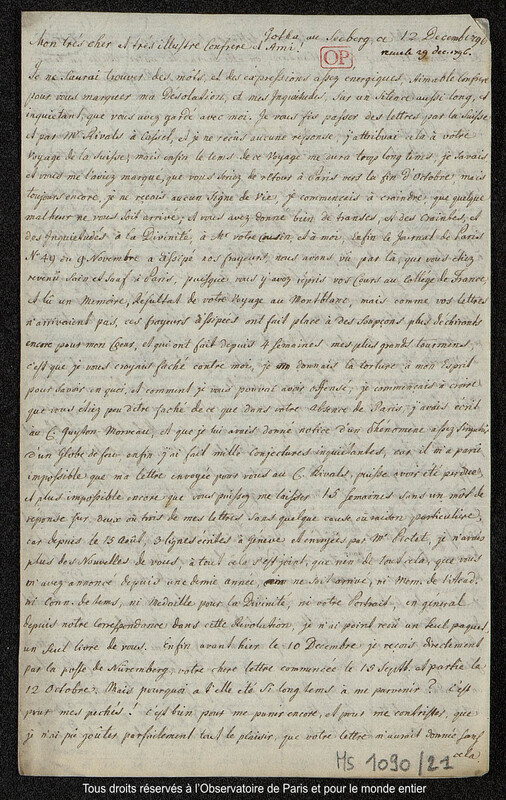 Gotha, au Seeberg ce 12 Decemb. 1796
Mon très cher et très illustre Confrere et Ami!
OP
reçue le 29 dec. 1796.
Je ne saurai trouver des mots, et des expressions assez energiques, aimable Confrere
pour vous marquer ma Désolation, et mes Inquiétudes, sur un Silence aussi long, et
inquietant, que vous avez gardé avec moi. Je vous fis passer des lettres par la Suisse
et par Mr Rivals à Cassel, et je ne reçus aucune reponse, j'attribuai cela à votre
Voyage de la Suisse, mais enfin le tems de ce Voyage me dura trop long tems, je savais
et vous me l'aviez marqué, que vous seriez de retour à Paris vers la fin d'Octobre mais
toujours encore, je ne reçais aucun Signe de Vie, je commençais à craindre que quelque
malheur ne vous soit arrivé, et vous avez donné bien de transes, et des Craintes, et
des Inquietudes à la Divinité, à Mr votre Cousin, et à moi, enfin le Journal de Paris
No 49 du 9 Novembre a dissipé nos frayeurs, nous avons vu par là, que vous etiez
revenu sain et sauf à Paris, puisque vous y avez repris vos Cours au Collége de France,
et lû un Memoire, Resultat de votre Voyage au Montblanc, mais comme vos lettres
n'arrivoient pas, ces frayeurs dissipées ont fait place à des soupçons plus déchirants
encore pour mon Coeur, et qui ont fait depuis 4 semaines mes plus grands tourmens,
c'est que je vous croyais faché contre moi, je donnais la torture à mon Esprit
pour savoir en quoi, et comment je vous pouvais avoir offensé, je commençais à croire
que vous étiez peu être faché de ce que dans votre Absence de Paris, j'avais écrit
au C. Guyton-Morveau, et que je lui avais donné notice d'un Phénomene assez singulier
d'un Globe de feu enfin j'ai fait mille conjectures inquiétantes, car il m'a parû
impossible que ma lettre envoyée pour vous au C. Rivals, puisse avoir été perdue,
et plus impossible encore que vous puissiez me laisser 15 Semaines sans un mot de
réponse sur deux ou trois de mes lettres sans quelque cause ou raison particuliere,
car depuis le 15 Août, 3 lignes écrites à Geneve et envoyées par Mr Pictet, je n'avais
plus des Nouvelles de vous, à tout cela s'est joint, que rien de tout cela, que vous
m'avez annoncé depuis une demie année ne soit arrivé, ni Mem. de l'Acad.
ni Conn. de tems, ni Medaille pour la Divinité, ni votre Portrait, en general
depuis notre Correspondance dans cette Révolution, je n'ai point reçû un seul paquet,
un seul livre de vous. Enfin avant hier le 10 Decembre je reçois directement
par la poste de Nüremberg votre chere lettre commencée le 15 Sept. et partie le
12 Octobre. Mais pourquoi a t'elle été si long tems à me parvenir? C'est
pour mes pechés! C'est bien pour me punir encore, et pour me contrister, que
je n'ai pû goûter parfaitement tout le plaisir, que votre lettre m'auroit donnée sans
cela
Ms 1090/21
Tous droits réservés à l'Observatoire de Paris et pour le monde entier